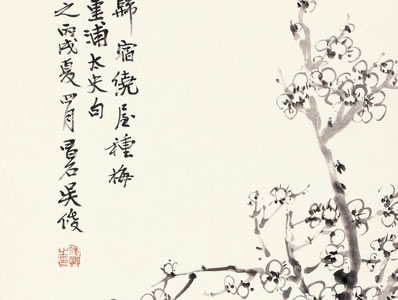 歸宿繞屋種梅
重浦太史句
之丙戌夏四月昌石吴俊